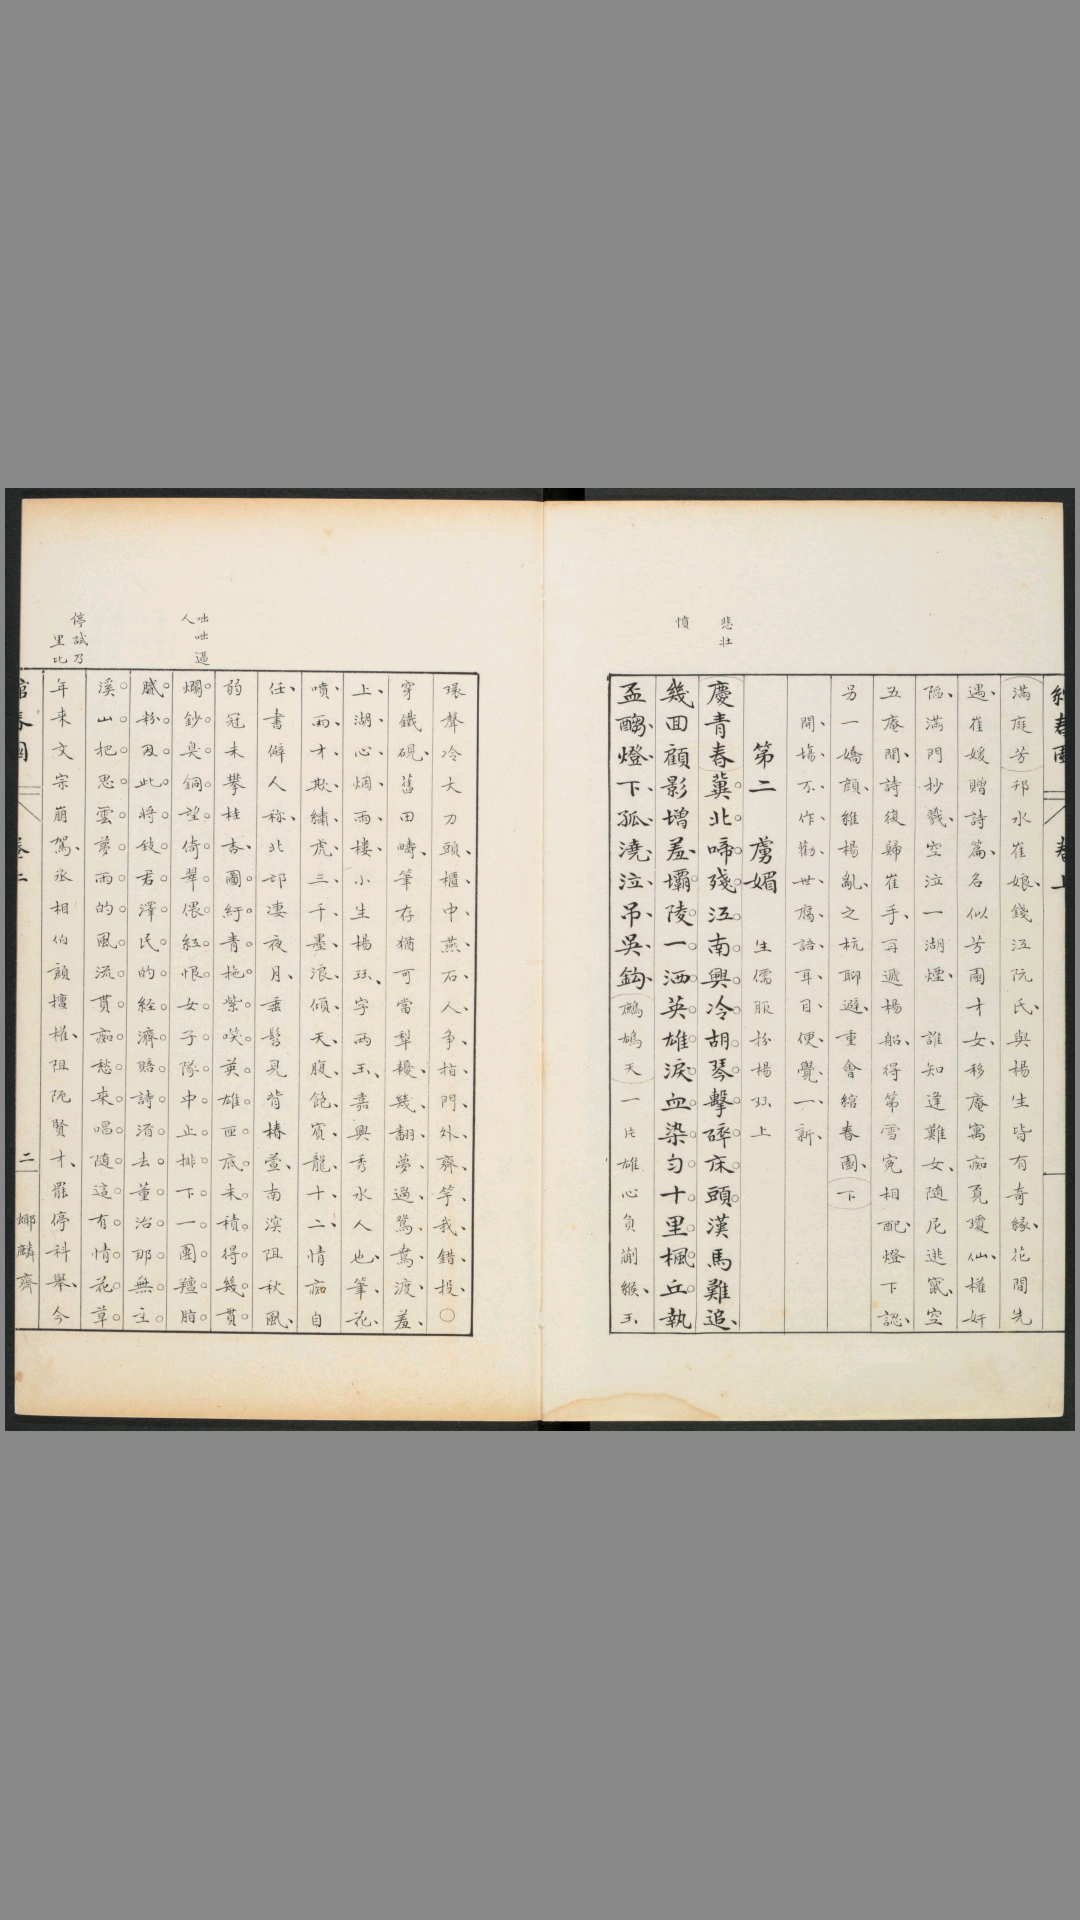 綰春園 卷上
滿庭芳邗水崔娘、錢江阮氏、與楊生皆有奇緣、花間先
遇、崔媛贈詩篇、名似芳園才女、移庵寓痴覓瓊仙、權奸
陷、滿門抄戮、空泣一湖煙、 誰知逢難女、隨尼逃竄、空
五庵間、詩復歸崔手、再遞楊船、得第雪冤相配、燈下認、
另一嬌顏、維楊亂、之杭聊避、重會綰春園、下
開塲、不作勸世腐語、耳目便覺一新、
第二 虜媚 生儒服扮楊珏上
慶青春冀北啼殘。江南興冷。胡琴擊碎床頭。漢馬難追、
幾回顧影增羞、壩陵一洒英雄淚。血染勻十里楓丘。執
盃酬、燈下孤澆、泣弔吳鈎、鷓鴣天一片雄心負蒯緱、玉
悲壯
憤
環聲冷大刀頭、櫃中燕石人爭指、門外齊竽我錯投、〇
穿鐵硯、舊田疇、筆存猶可當犁耰、幾翻夢過鴛鴦渡、羞
上湖心烟雨樓、小生楊珏、字兩玉、嘉興秀水人也、筆花
噴雨、才欺繡虎、三千墨浪傾天、腹飽賓龍、十二情痴自
任、書僻人称、北邙淒夜月、垂髫見背椿萱、南濱阻秋風、
弱冠未攀桂杏、圖紆青拖紫。啖英雄匝底。未積得幾貫
爛鈔臭銅。望倚翠偎紅。恨女子隊中。止排下一團羶脂
膩粉。因此將致君澤民的経濟。賠詩酒去董治那無主
溪山。把思雲夢雨的風流。貫痴愁來唱隨這有情花草。
年來文宗崩駕、丞相伯顏擅權、阻阨賢才、罷停科舉、今
咄咄逼
人
停試乃
里比
綰春園 卷上 二 螂麟齋